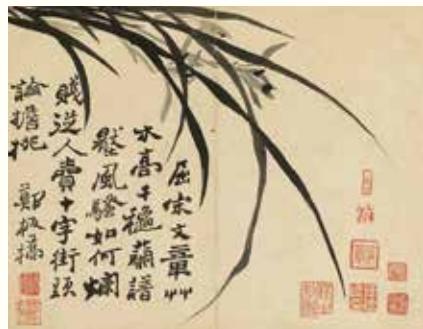 屈宋文章艸
木高千穐蘭譜
壓風騷如何爛
賤從人賣十字街頭
論擔挑 鄭板橋